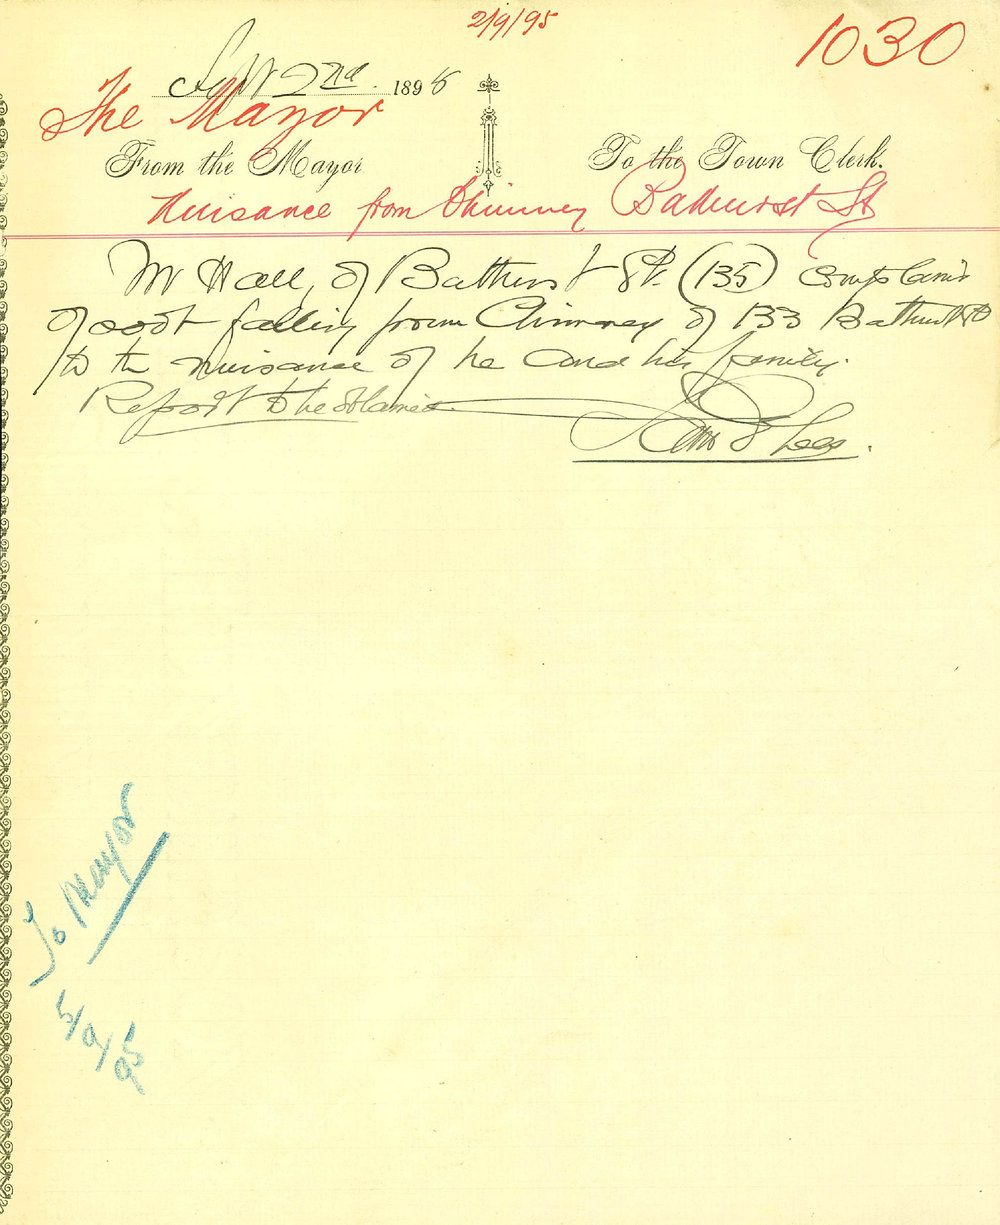 2/9/95
1030
Sept 2nd 1895
The Mayor
From the Mayor To the Town Clerk.
Nuisance from Chimney Bathurst St
Mr Hall, of Bathurst St. (135) complains
of soot falling from Chimney of 133 Bathurst St
to the nuisance of he and his family.
Report to be obtained.
Sam E Lees.
To Mayor
5/9/95